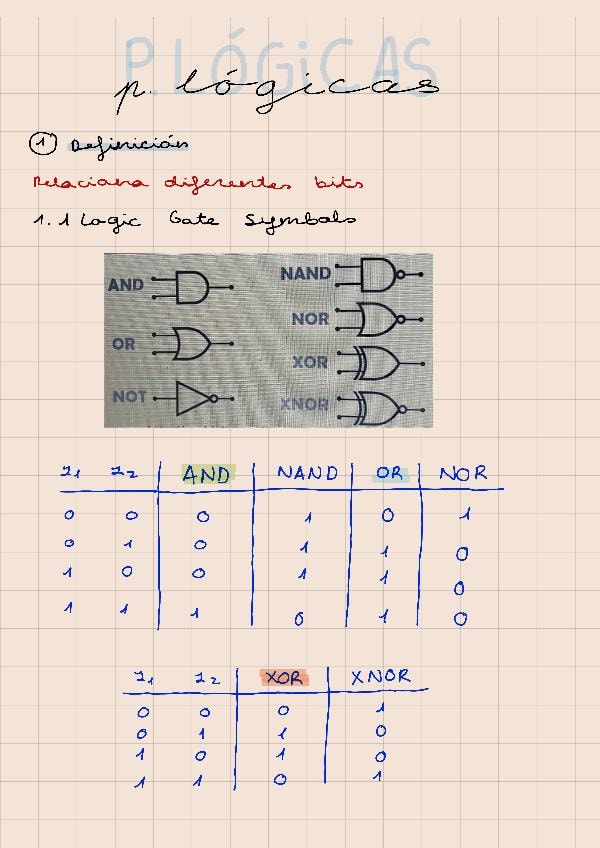 P.LÓGiCAS
p. lógicas
① Definición
Relaciona diferentes bits
1.1 Logic Gate Symbols
AND NAND
NOR
OR
XOR
NOT
XNOR
I1 I2 AND NAND OR NOR
0 0 0 1 0 1
0 1 0 1 1 0
1 0 0 1 1 0
1 1 1 0 1 0
I1 I2 XOR XNOR
0 0 0 1
0 1 1 0
1 0 1 0
1 1 0 1